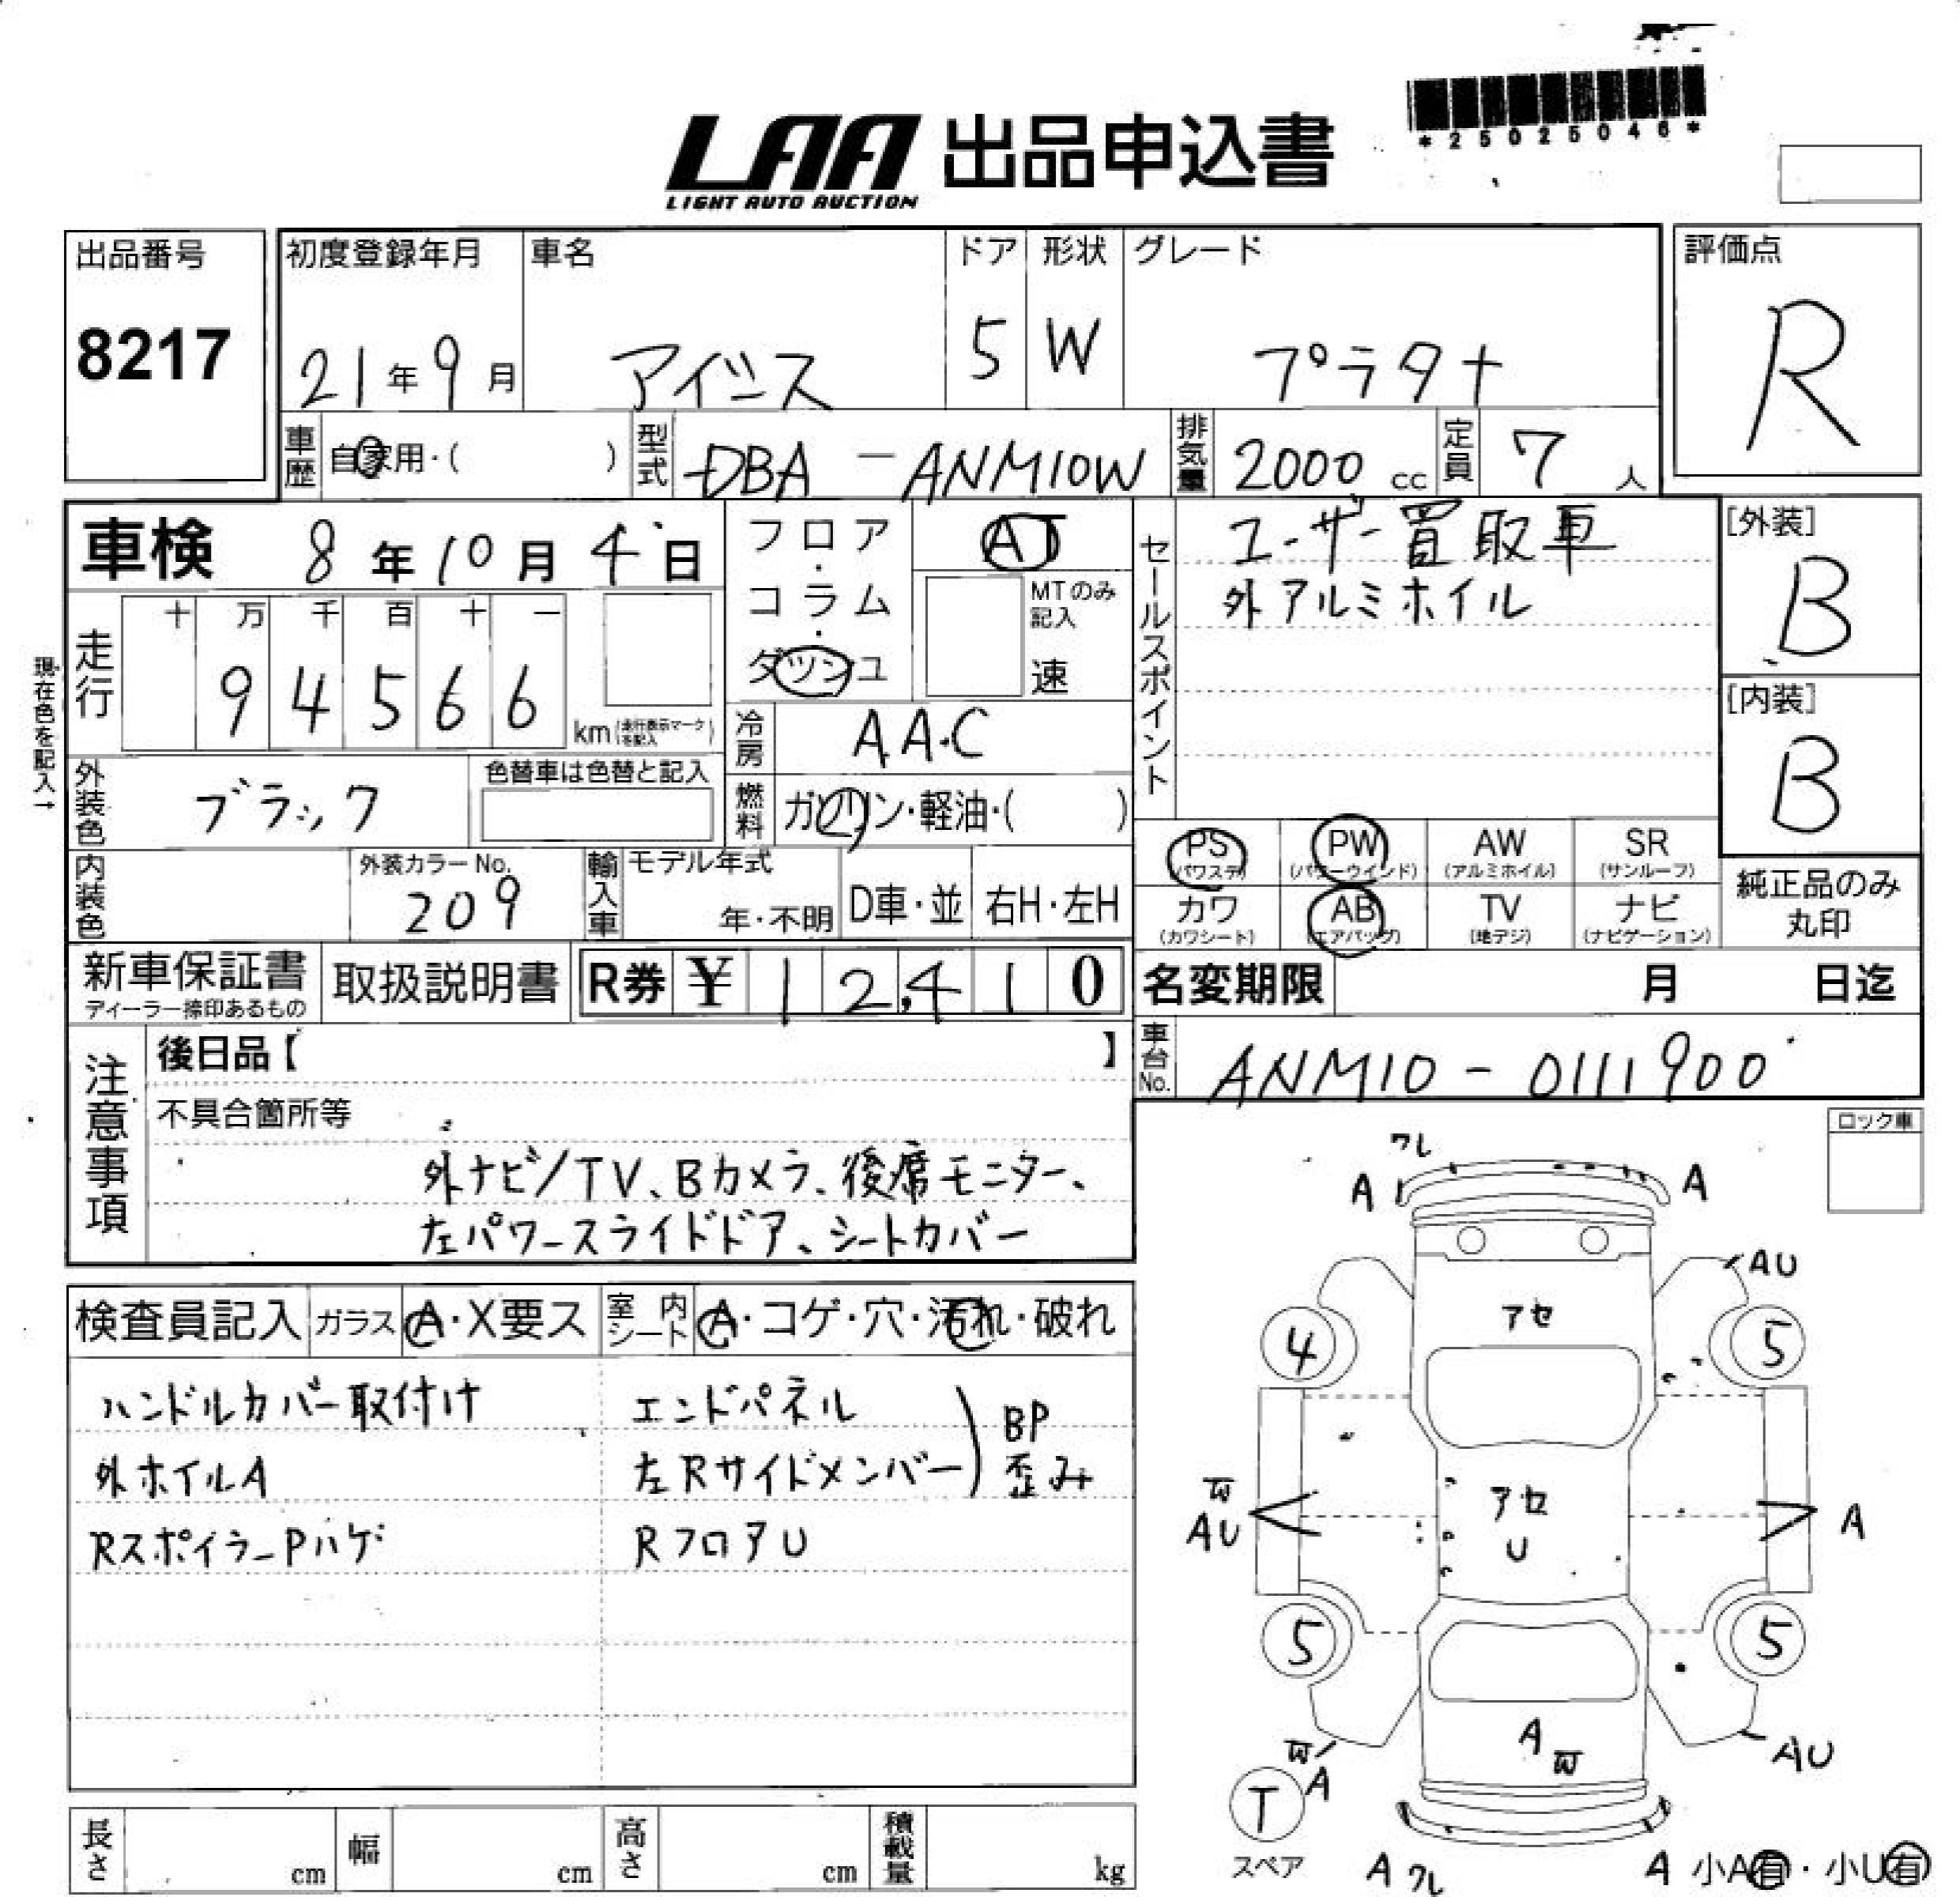 *25025046*
LAA 出品申込書
LIGHT AUTO AUCTION
出品番号
8217
初度登録年月
21年9月
車名
アイシス
ドア
5
形状
W
グレード
プラタナ
評価点
R
車歴
自家用・( )
型式
DBA-ANM10W
排気量
2000 cc
定員
7 人
車検 8年10月4日
現在色を記入→
走行
十 万 千 百 十 一
9 4 5 6 6
km(走行表示マークを記入)
フロア・コラム・ダッシュ
AT
MTのみ記入
速
冷房
A.A.C
燃料
ガソリン・軽油・( )
外装色
ブラック
色替車は色替と記入
内装色
外装カラーNo.
209
輸入車
モデル年式
年・不明
D車・並
右H・左H
セールスポイント
ユーザー買取車
外アルミホイル
[外装]
B
[内装]
B
PS (パワステ)
PW (パワーウインド)
AW (アルミホイル)
SR (サンルーフ)
カワ (カワシート)
AB (エアバッグ)
TV (地デジ)
ナビ (ナビゲーション)
純正品のみ
丸印
新車保証書
ディーラー捺印あるもの
取扱説明書
R券 ¥ 12,410
名変期限 月 日迄
車台No.
ANM10-0111900
注意事項
後日品【 】
不具合箇所等
外ナビ/TV、Bカメラ、後席モニター、
左パワースライドドア、シートカバー
ロック車
検査員記入
ガラス
A・X要ス
室内シート
A・コゲ・穴・汚れ・破れ
ハンドルカバー取付け
外ホイルA
RスポイラーPハゲ
エンドパネル
左Rサイドメンバー
BP
歪み
RフロアU
ワレ
A
A
AU
アセ
4
5
W
AU
アセ
U
A
5
5
W
A
A
W
AU
T
スペア
A ワレ
A
小A有・小U有
長さ cm
幅 cm
高さ cm
積載量 kg